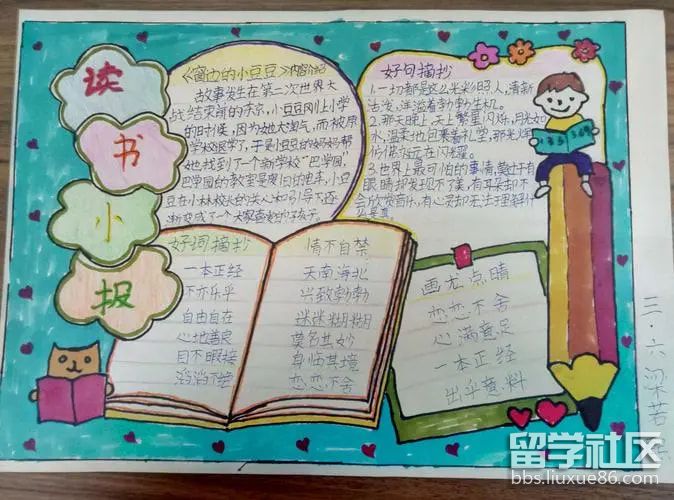 读
书
小
报
《窗边的小豆豆》内容介绍
故事发生在第二次世界大
战结束前的东京,小豆豆刚上小学
的时候,因为她太淘气,而被原
学校退学了,于是小豆豆的妈妈帮
她找到了一个新学校“巴学园”.
巴学园的教室是废旧的电车,小豆
豆在小林校长的关心和引导下逐
渐变成了一个大家喜爱的孩子。
好句摘抄
1.一切都是这么光彩照人,清新
活泼,洋溢着勃勃生机。
2.那天晚上,天上繁星闪烁,月光如
水,温柔地回来着礼堂,那光辉
仿佛永远在闪耀。
3.世界上最可怕的事情,莫过于有
眼睛却发现不了美,有耳朵却不
会欣赏音乐,有心灵却无法理解什
么是真。
好词摘抄
一本正经
不亦乐乎
自由自在
心地善良
目不暇接
滔滔不绝
情不自禁
天南海北
兴致勃勃
迷迷糊糊
莫名其妙
身临其境
恋恋不舍
画龙点睛
恋恋不舍
心满意足
一本正经
出乎意料
三·六梁若
留学社区
bbs.liuxue86.com